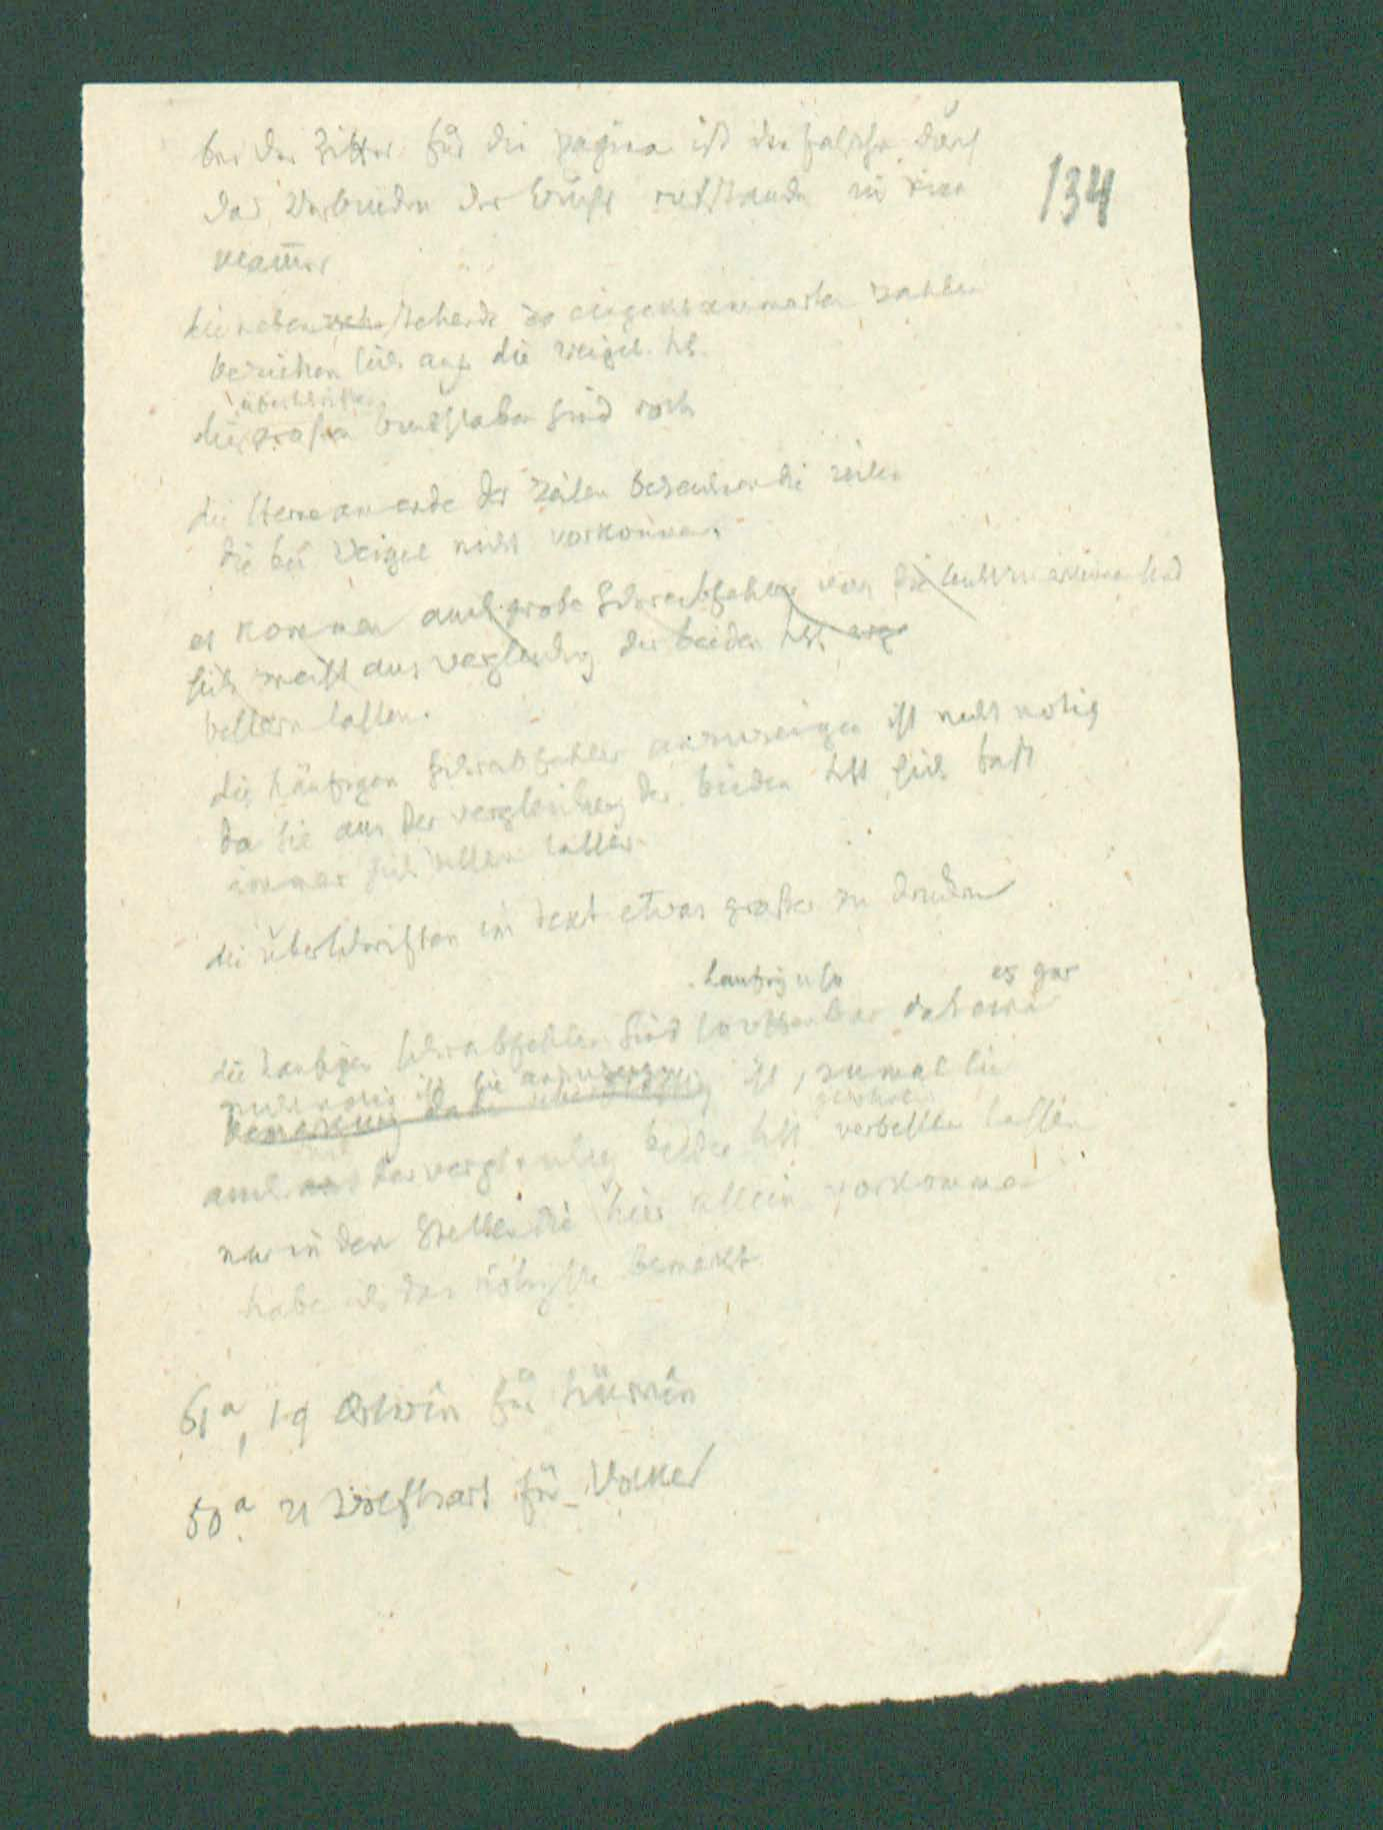 bei der Ziffer für die pagina ist die falsche durch
das Verbinden der entstanden in einer
134
klam̅er
die neben stehende so eingeklammerten zahlen
beziehen sich auf die weigel. hs.
überschriften
die großen buchstaben sind roth
die sterne am ende der Zeilen bezeichnen die zeilen
die bei Weigel nicht vorkommen.
es kommen auch grobe Schreibfehler vor die
sich meist aus vergleichung der beiden hss.
bessern lassen.
die häufigen Schreibfehler anzuzeigen ist nicht nötig
da sie aus der vergleichung der beiden hss sich fast
immer lassen.
die überschriften im text etwas großer zu drucken
häufig u so es gar
die haufigen schreibfehler sind so offenbar daß eine
nicht nötig ist sie anzuzeigen
bemerkung ist, zumal sie
auch aus der vergleichung beider hss verbessern lassen
nur in den Stellen die hier allein vorkommen
habe ich das nöthigste bemerkt
61ª, 19 Ortwin für
50ª 21 Wolfhart für Volker